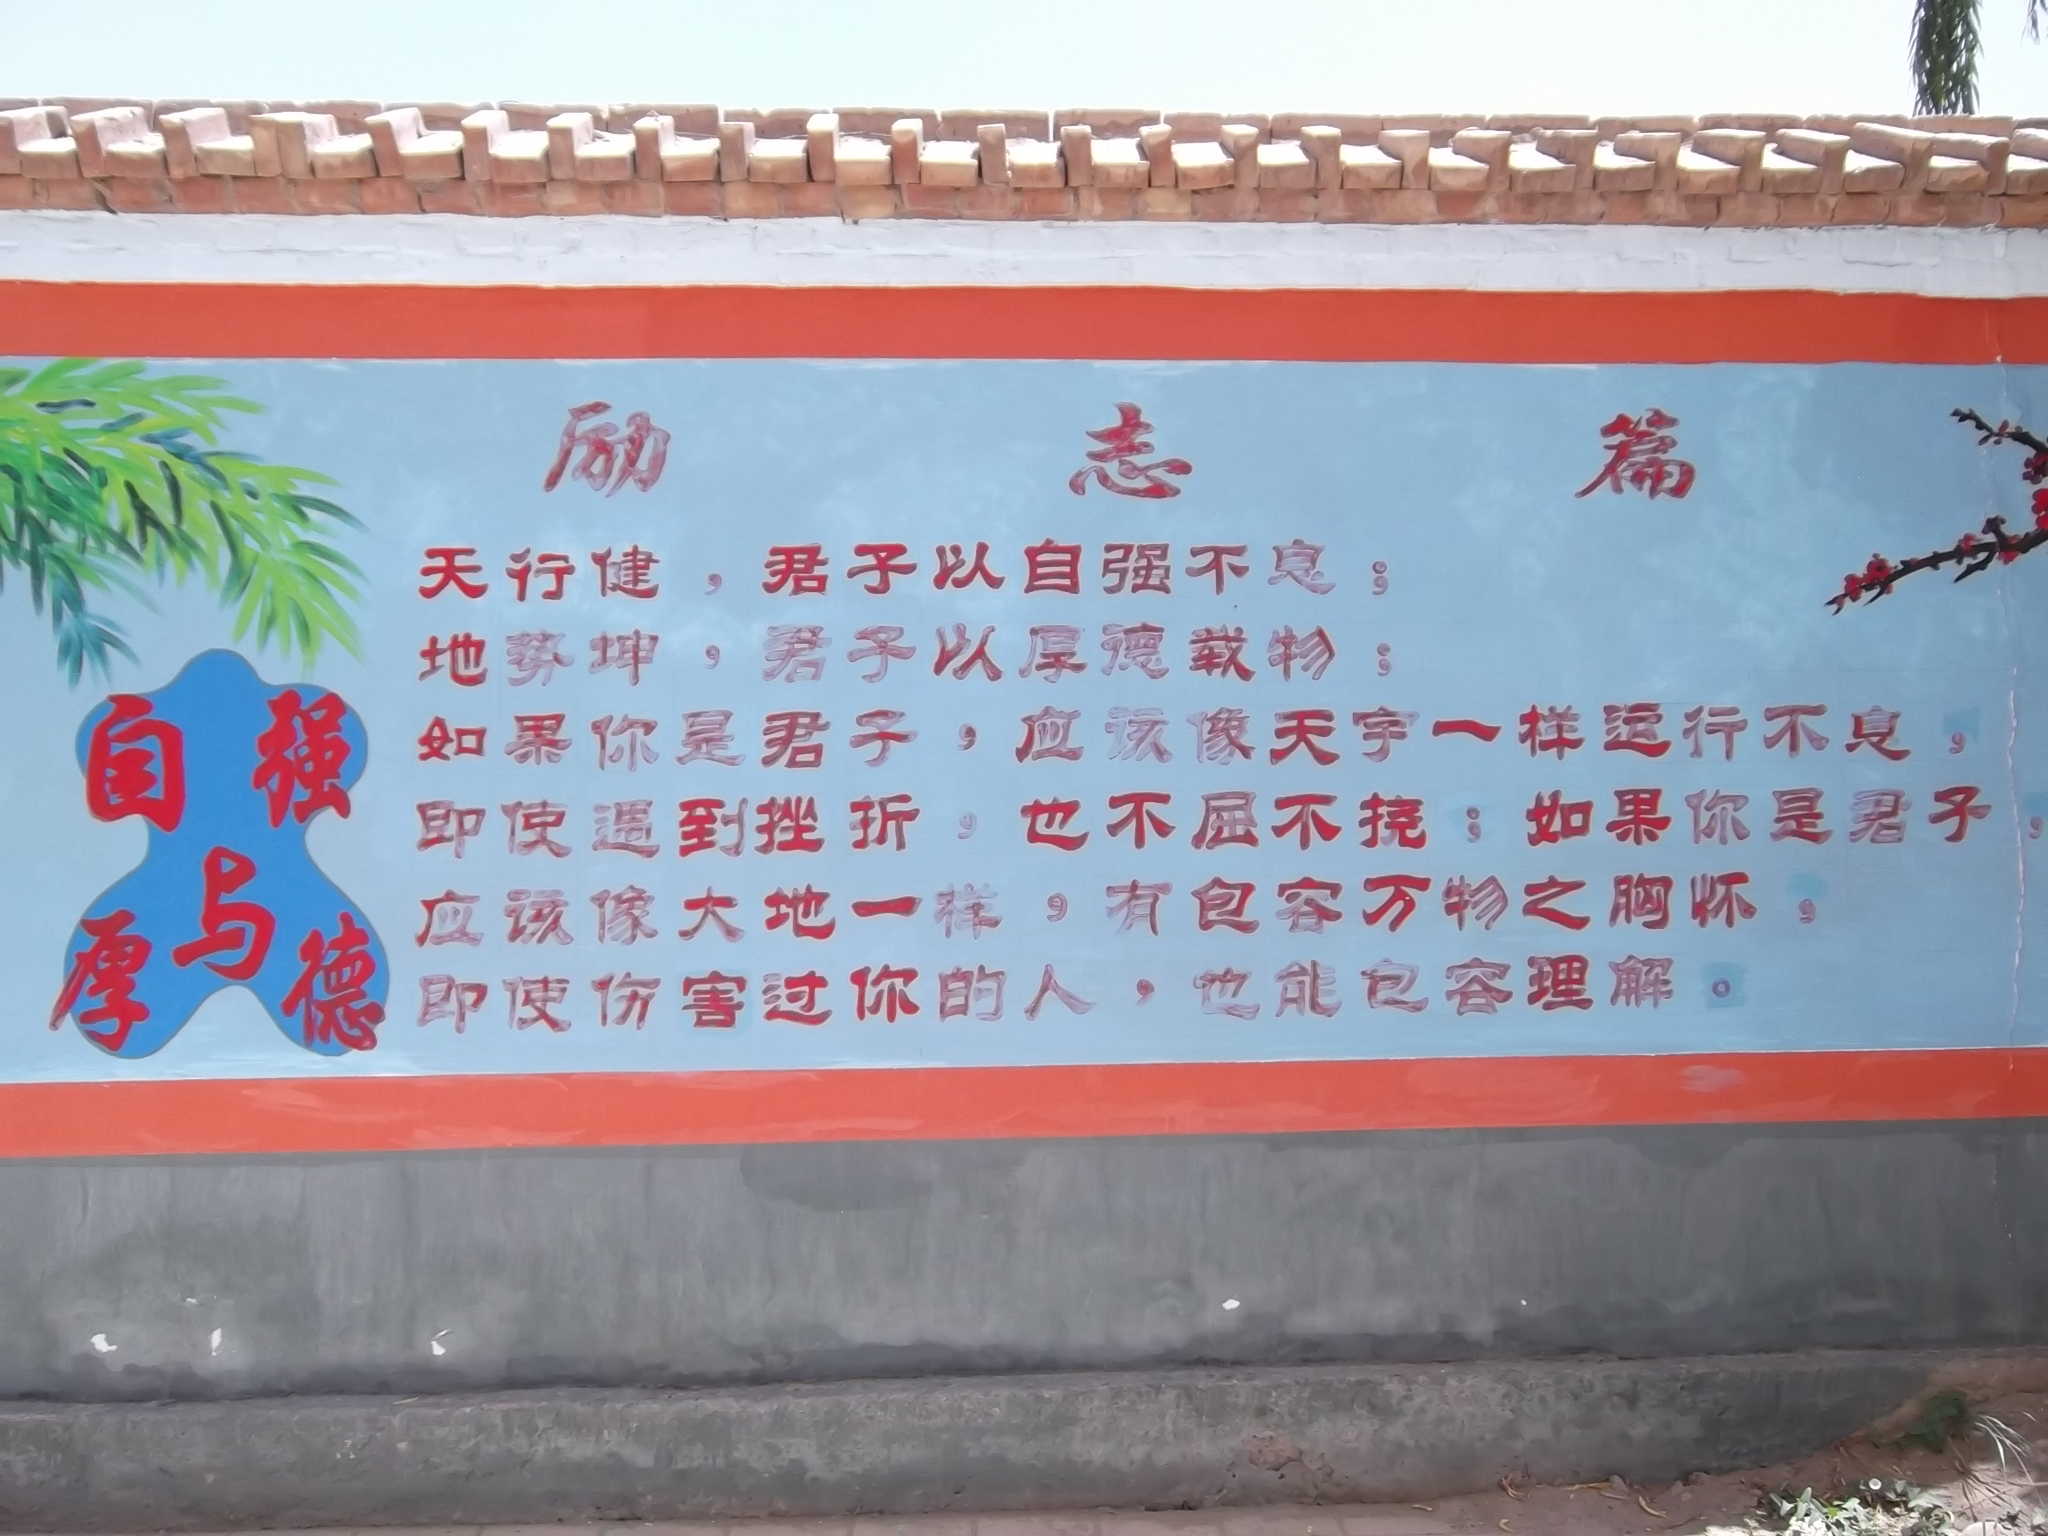 励志篇
天行健，君子以自强不息；
地势坤，君子以厚德载物；
如果你是君子，应该像天宇一样运行不息，
即使遇到挫折，也不屈不挠；如果你是君子，
应该像大地一样，有包容万物之胸怀，
即使伤害过你的人，也能包容理解。
自强
与
厚德